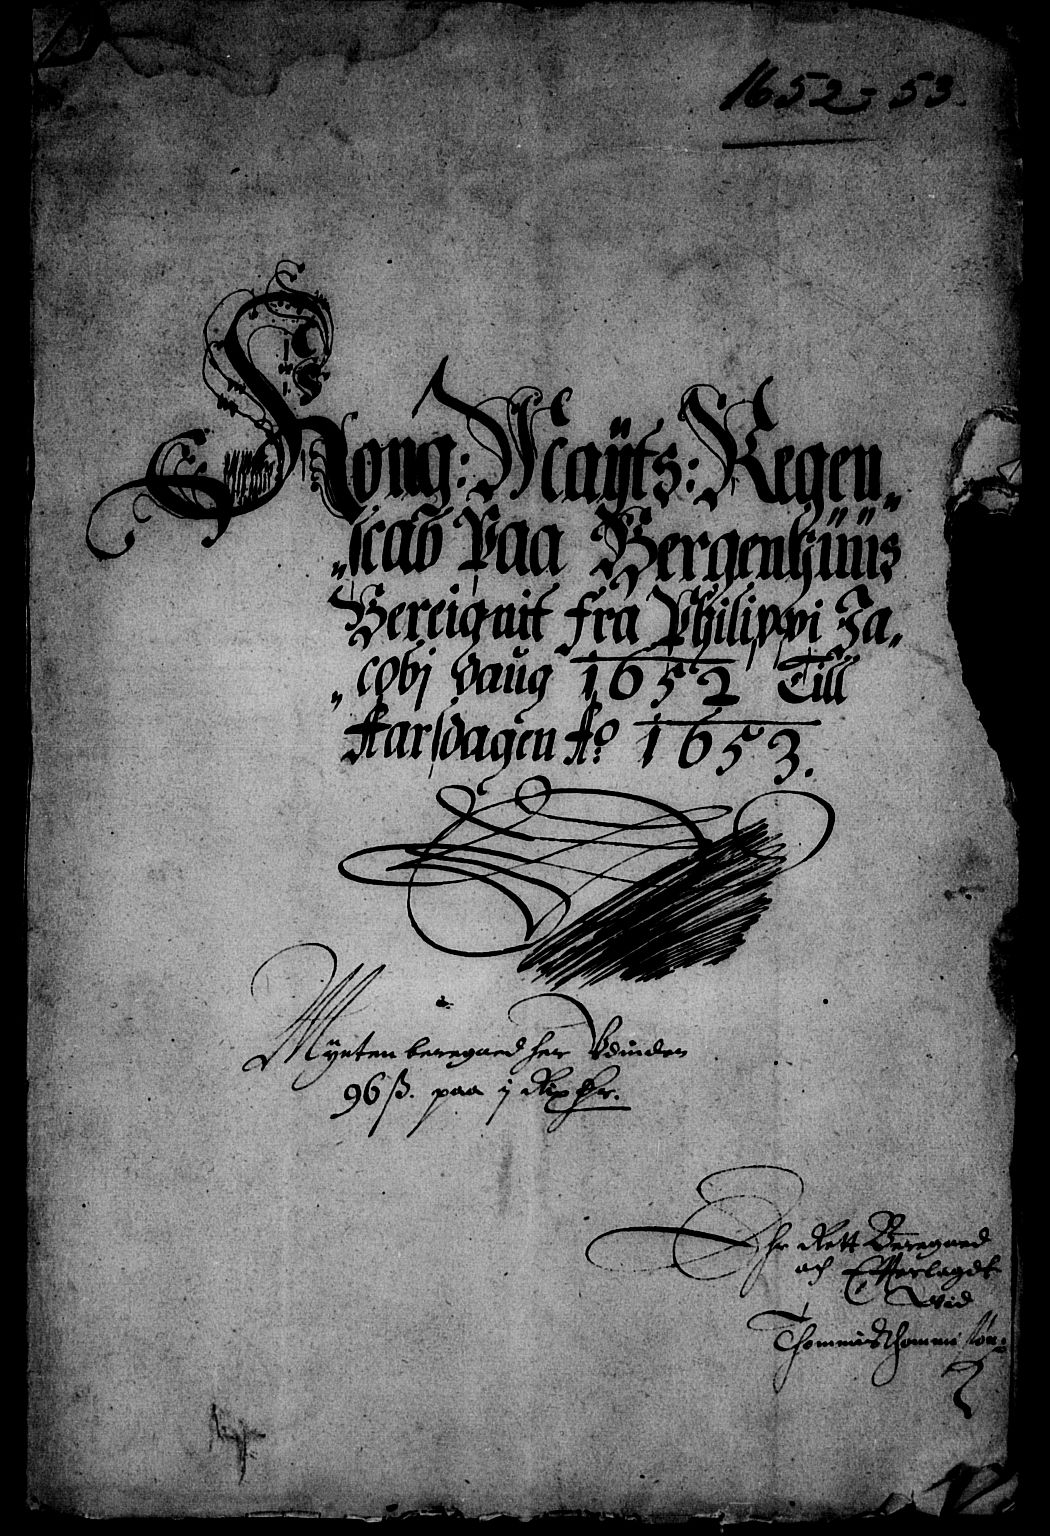 1652-53.
Kong: Maÿts: Regen„
„scab Paa Bergenhuus
Bereignit fra Philippi Ja„
„cobj daug 1652 Till
Aarsdagen Ao 1653.
Mÿnten beregned her Udinden
96 ß. paa j Rix dlr.
Ehr Rett Beregned
och Efterlagdt
wid
Thommis Thommissøn: